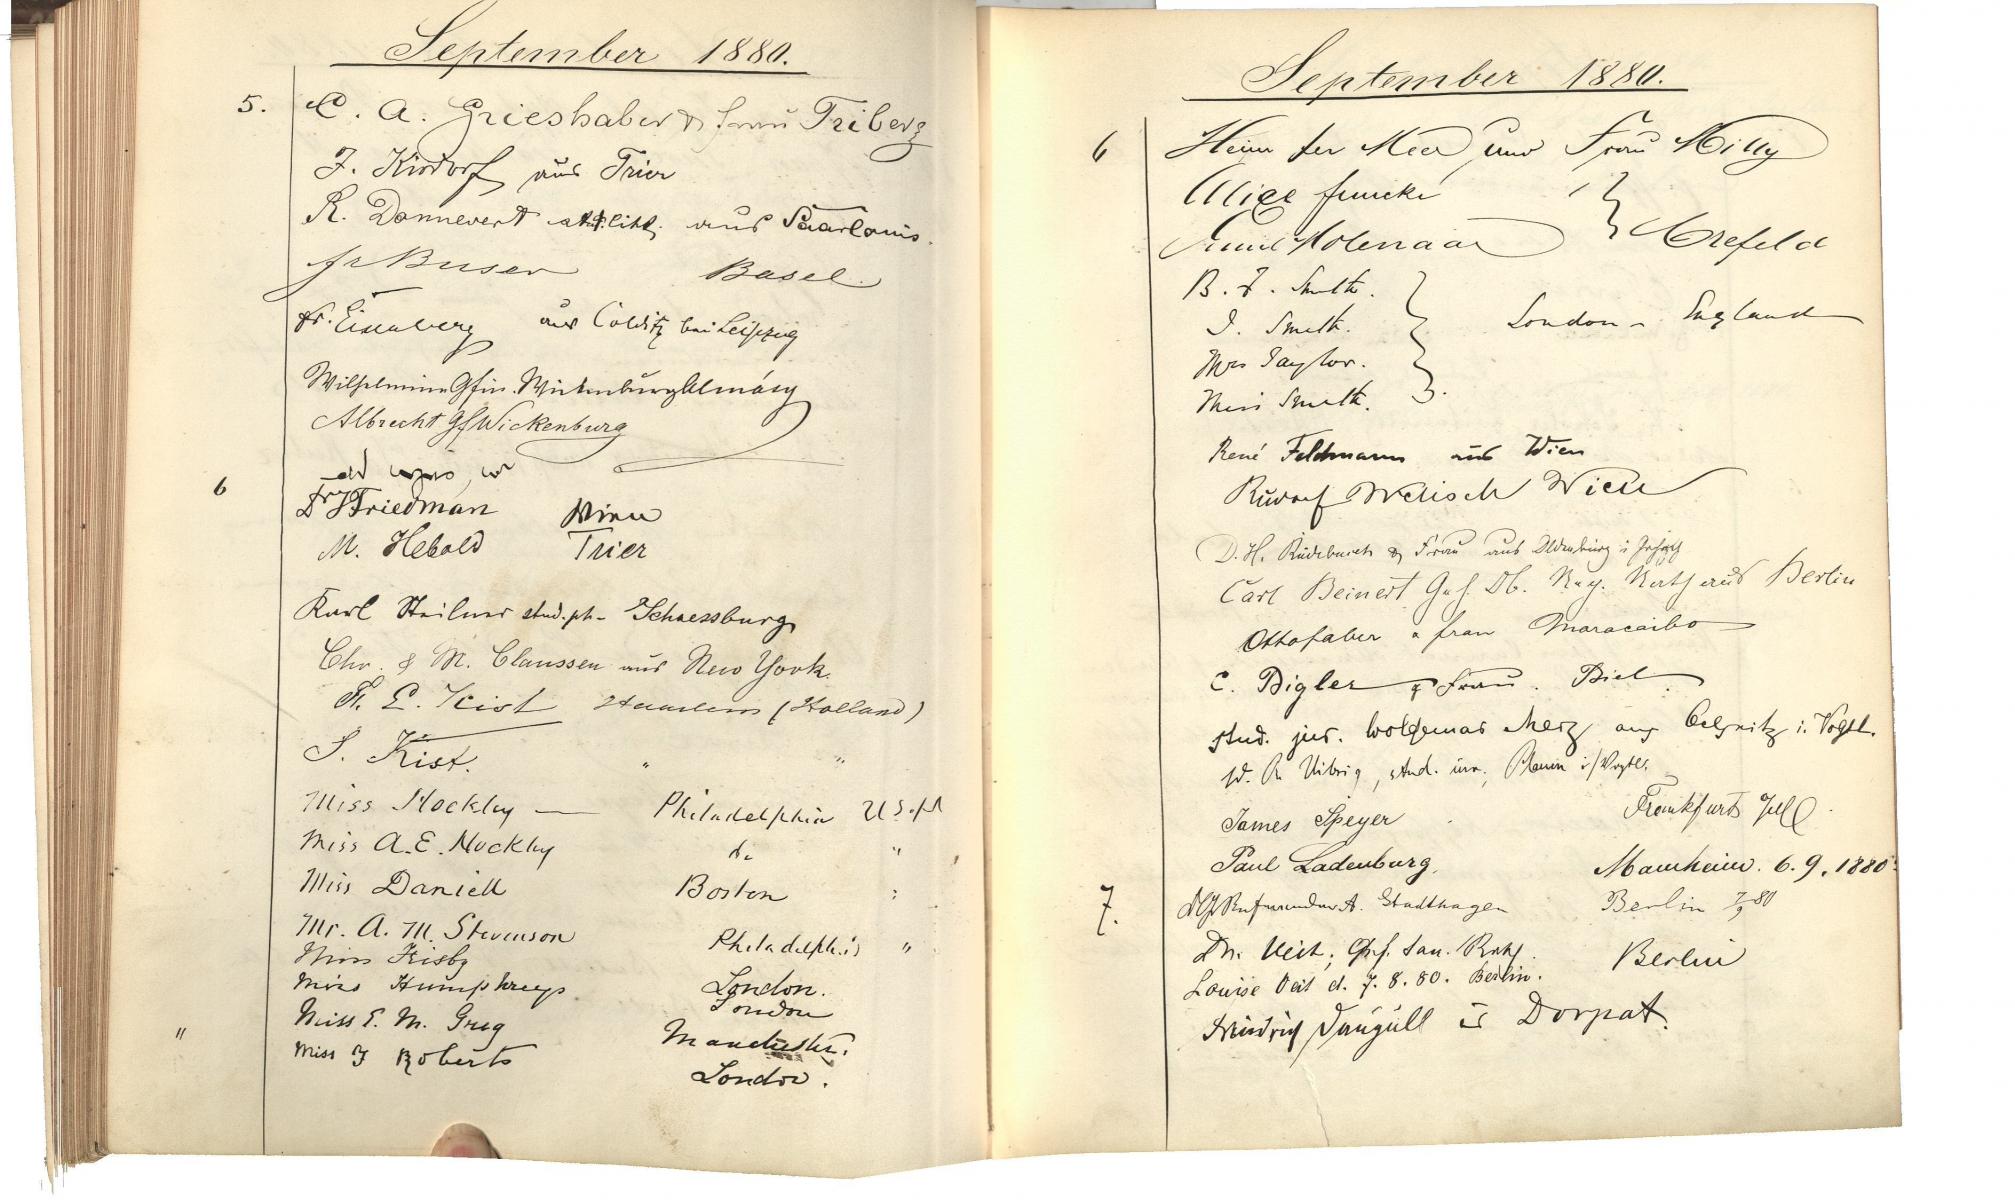 September 1880.
5. C. A. Grieshaber & Frau Triberg
F. Kirdorf aus Trier
R. Dannevert aus Saarlouis.
Fr Buser Basel.
Dr. Eisenberg aus Colditz bei Leipzig
Wilhelmine Gfin. Wickenburg Almásy
Albrecht Gf Wickenburg
6
Dr Friedman Wien
M. Hebold Trier
Karl stud. ph. Schaessburg
Chr. & M. Claussen aus New York.
F. E. Kist Haarlem (Holland)
S. Kist. " "
Miss Mockley — Philadelphia
Miss A. E. Mockley do "
Miss Daniell Boston
Mr. A. M. Stevenson Philadelphia "
Miss Frisby
Miss Humphreys London.
London
" Miss E. M. Greg Manchester.
Miss J Roberts London.
September 1880.
6 ter Meer und Frau Milly
Alice Funcke
Molenaar Crefeld
B. F. Smith.
J. Smith. London - England
Mrs Taylor.
Miss Smith.
René Feldmann aus Wien
Rudolf Welisch Wien
D. H. & Frau aus Oldenburg i
Carl Beinert Geh. Ob. Reg. Rath aus Berlin
Otto Faber & frau Maracaibo
C. Bigler & Frau. Biel
stud. jur. Woldemar Merz aus Oelsnitz i. Vogtl.
stud. iur. Plauen i/Vogtl.
James Speyer Frankfurt
Paul Ladenburg. Mannheim. 6. 9. 1880.
7. Referendar A. Stadthagen Berlin 7/9 80
Dr. Veit, Geh. San. Rath. Berlin
Louise Veit d. 7. 8. 80. Berlin.
Dorpat.